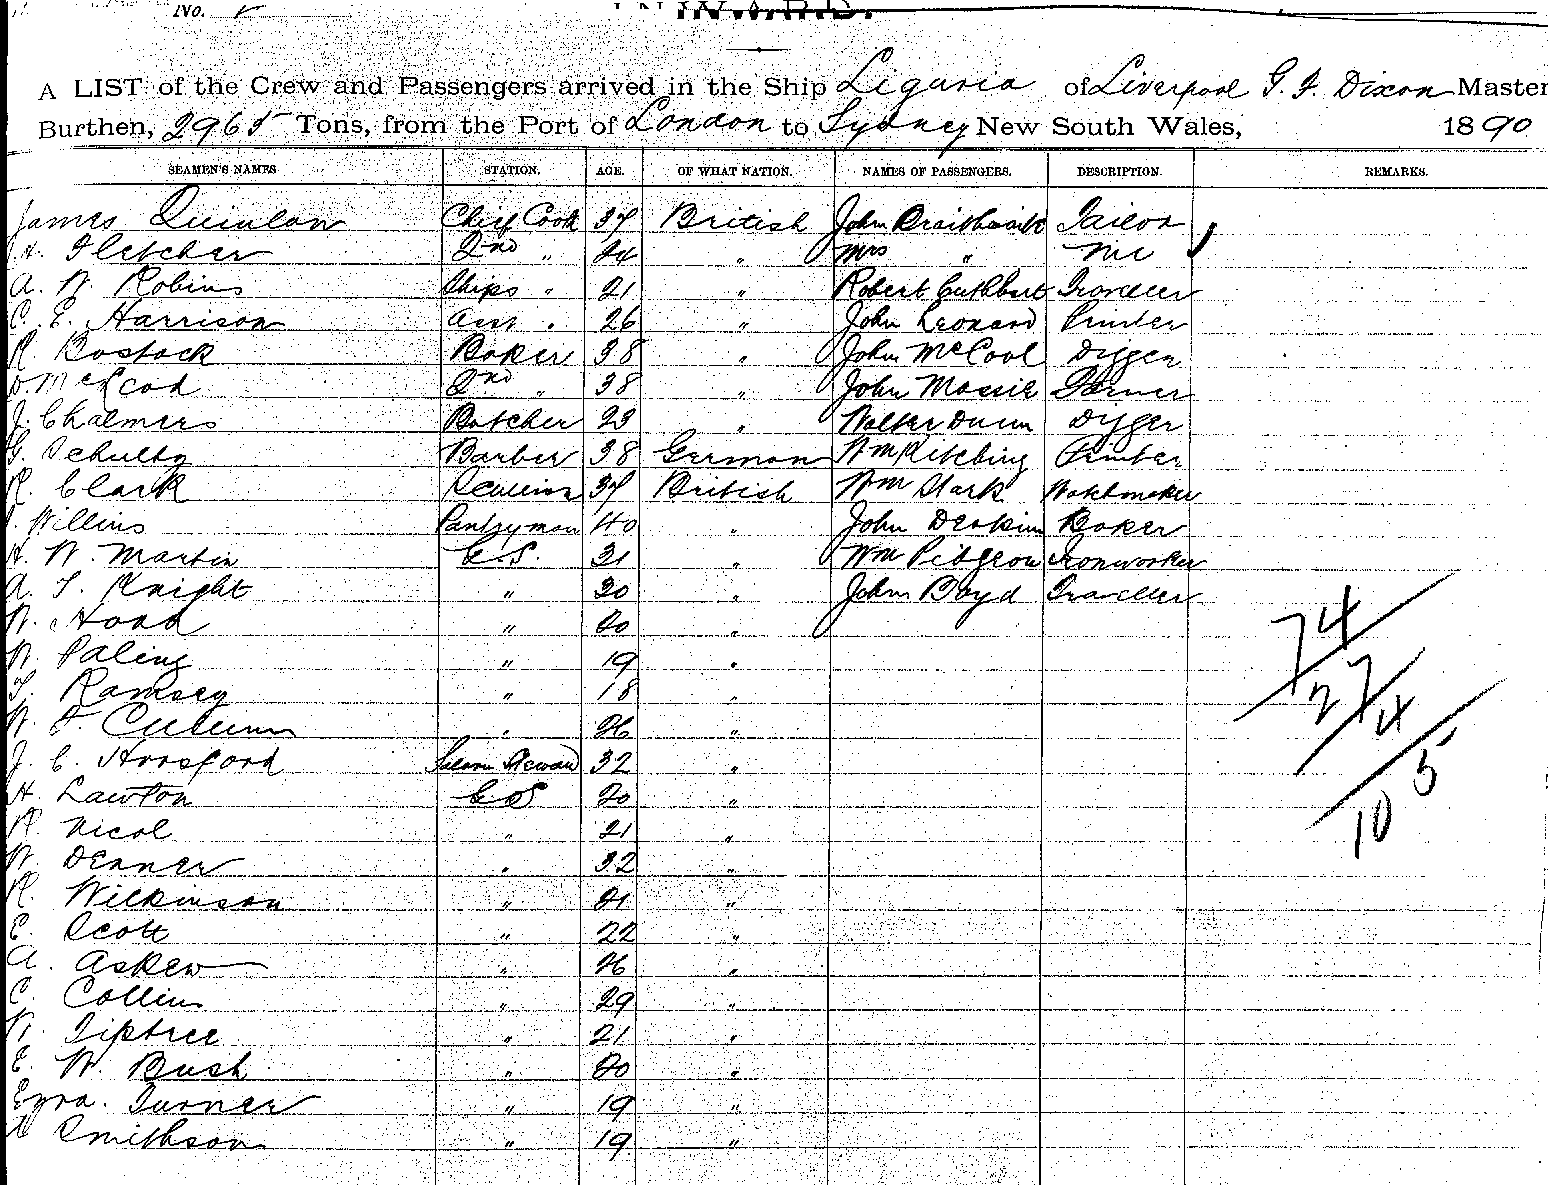 No.
INWARD.
A LIST of the Crew and Passengers arrived in the Ship Liguria of Liverpool G. F. Dixon Master
Burthen, 2965 Tons, from the Port of London to Sydney New South Wales, 1890
SEAMEN'S NAMES STATION. AGE. OF WHAT NATION. NAMES OF PASSENGERS. DESCRIPTION. REMARKS.
James Quinlan Chief Cook 37 British John Braithwaite Tailor
H. Fletcher 2nd " 24 " Mrs "
A. W. Robins Ships " 21 " Robert Cuthbert Traveller
C. E. Harrison Asst " 26 " John Leonard Printer
R. Bostock Baker 38 " John McCool Digger
D. McLeod 2nd " 38 " John Massie Farmer
J. Chalmers Butcher 23 " Walter Dunn Digger
G. Schultz Barber 38 German Wm Kitching Printer
R. Clark Scullion 37 British Wm Stark Watchmaker
Willins Pantryman 40 " John Deakin Baker
H. W. Martin G.S. 31 " Wm Ironworker
A. T. Knight " 30 " John Boyd Traveller
W. Hoad " 20 "
W. Paling " 19 "
T. Ramsey " 18 "
W. F. " 26 "
J. C. Horsford Saloon Steward 32 "
H. Lawton G.S. 20 "
R. Nicol " 21 "
W. Denner " 32 "
R. Wilkinson " 21 "
E. Scott " 22 "
A. Askew " 26 "
C. Collins " 29 "
W. Tiptree " 21 "
E. W. Bush " 20 "
Ezra. Turner " 19 "
Smithson " 19 "
74
274
105